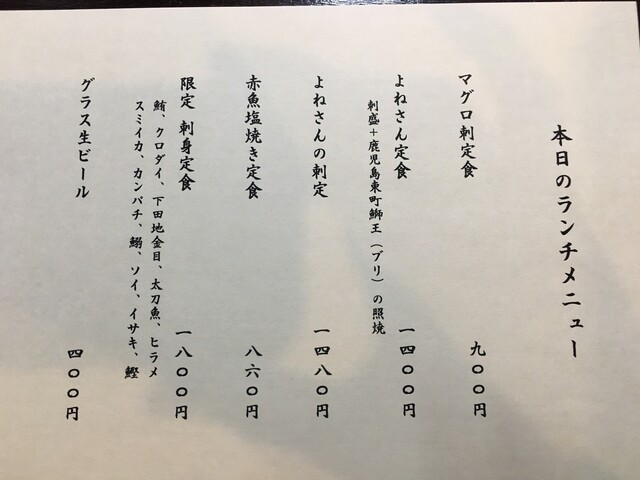 本日のランチメニュー
マグロ刺定食 九〇〇円
よねさん定食 一四〇〇円
刺盛＋鹿児島東町鰤王（ブリ）の照焼
よねさんの刺定 一四八〇円
赤魚塩焼き定食 八六〇円
限定 刺身定食 一八〇〇円
鮪、クロダイ、下田地金目、太刀魚、ヒラメ
スミイカ、カンパチ、鰯、ソイ、イサキ、鰹
グラス生ビール 四〇〇円